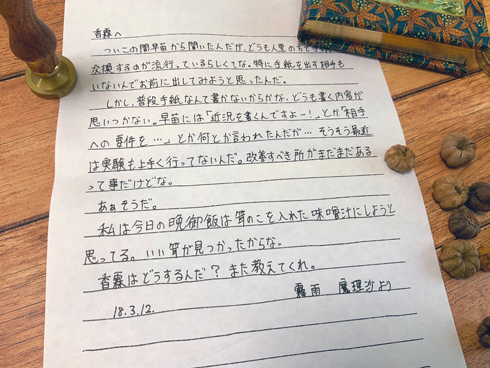 香霖へ
ついこの間早苗から聞いたんだが、どうも人里の方で手
交換するのが流行っているらしくてな。特に手紙を出す相手も
いないんでお前に出してみようと思ったんだ。
しかし、普段手紙なんて書かないからかな、どうも書く内容が
思いつかない。早苗には「近況を書くんですよー!」とか「相手
への要件を…」とか何とか言われたんだが… そうそう最近
は実験も上手く行ってないんだ。改善すべき所がまだまだある
って事だけどな。
あぁそうだ。
私は今日の晩御飯は茸のこを入れた味噌汁にしようと
思ってる。いい茸が見つかったからな。
香霖はどうするんだ?また教えてくれ。
霧雨 魔理沙より
18.3.12.